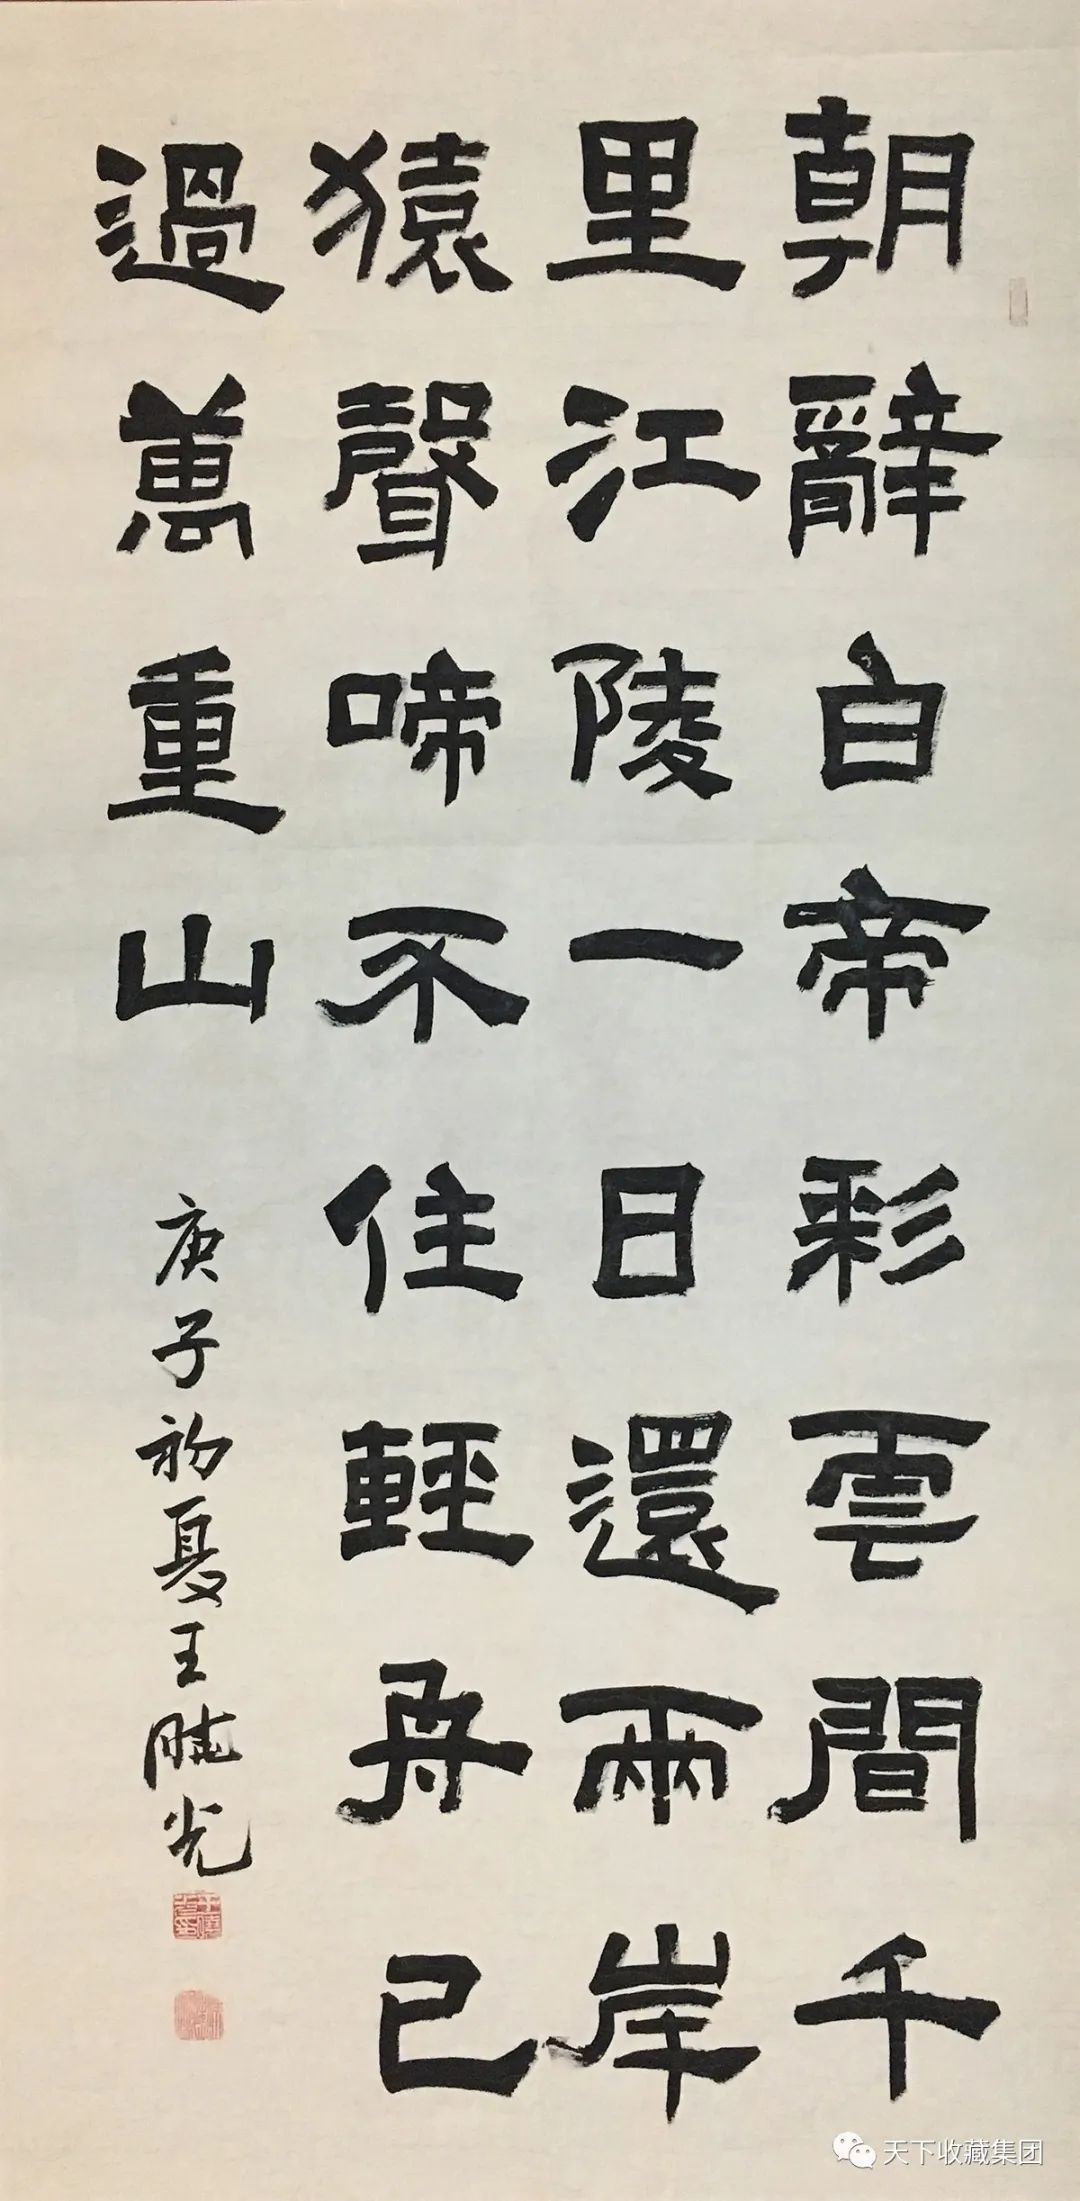 朝辭白帝彩雲間千
里江陵一日還兩岸
猿聲啼不住輕舟已
過萬重山
庚子初夏王曉光
天下收藏集团